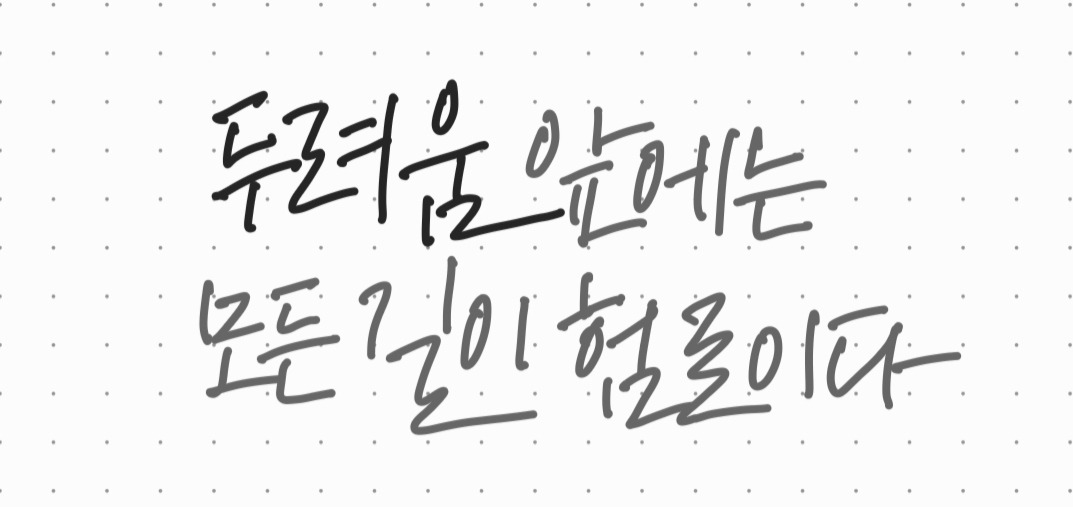 두려움 앞에는
모든 길이 험로이다